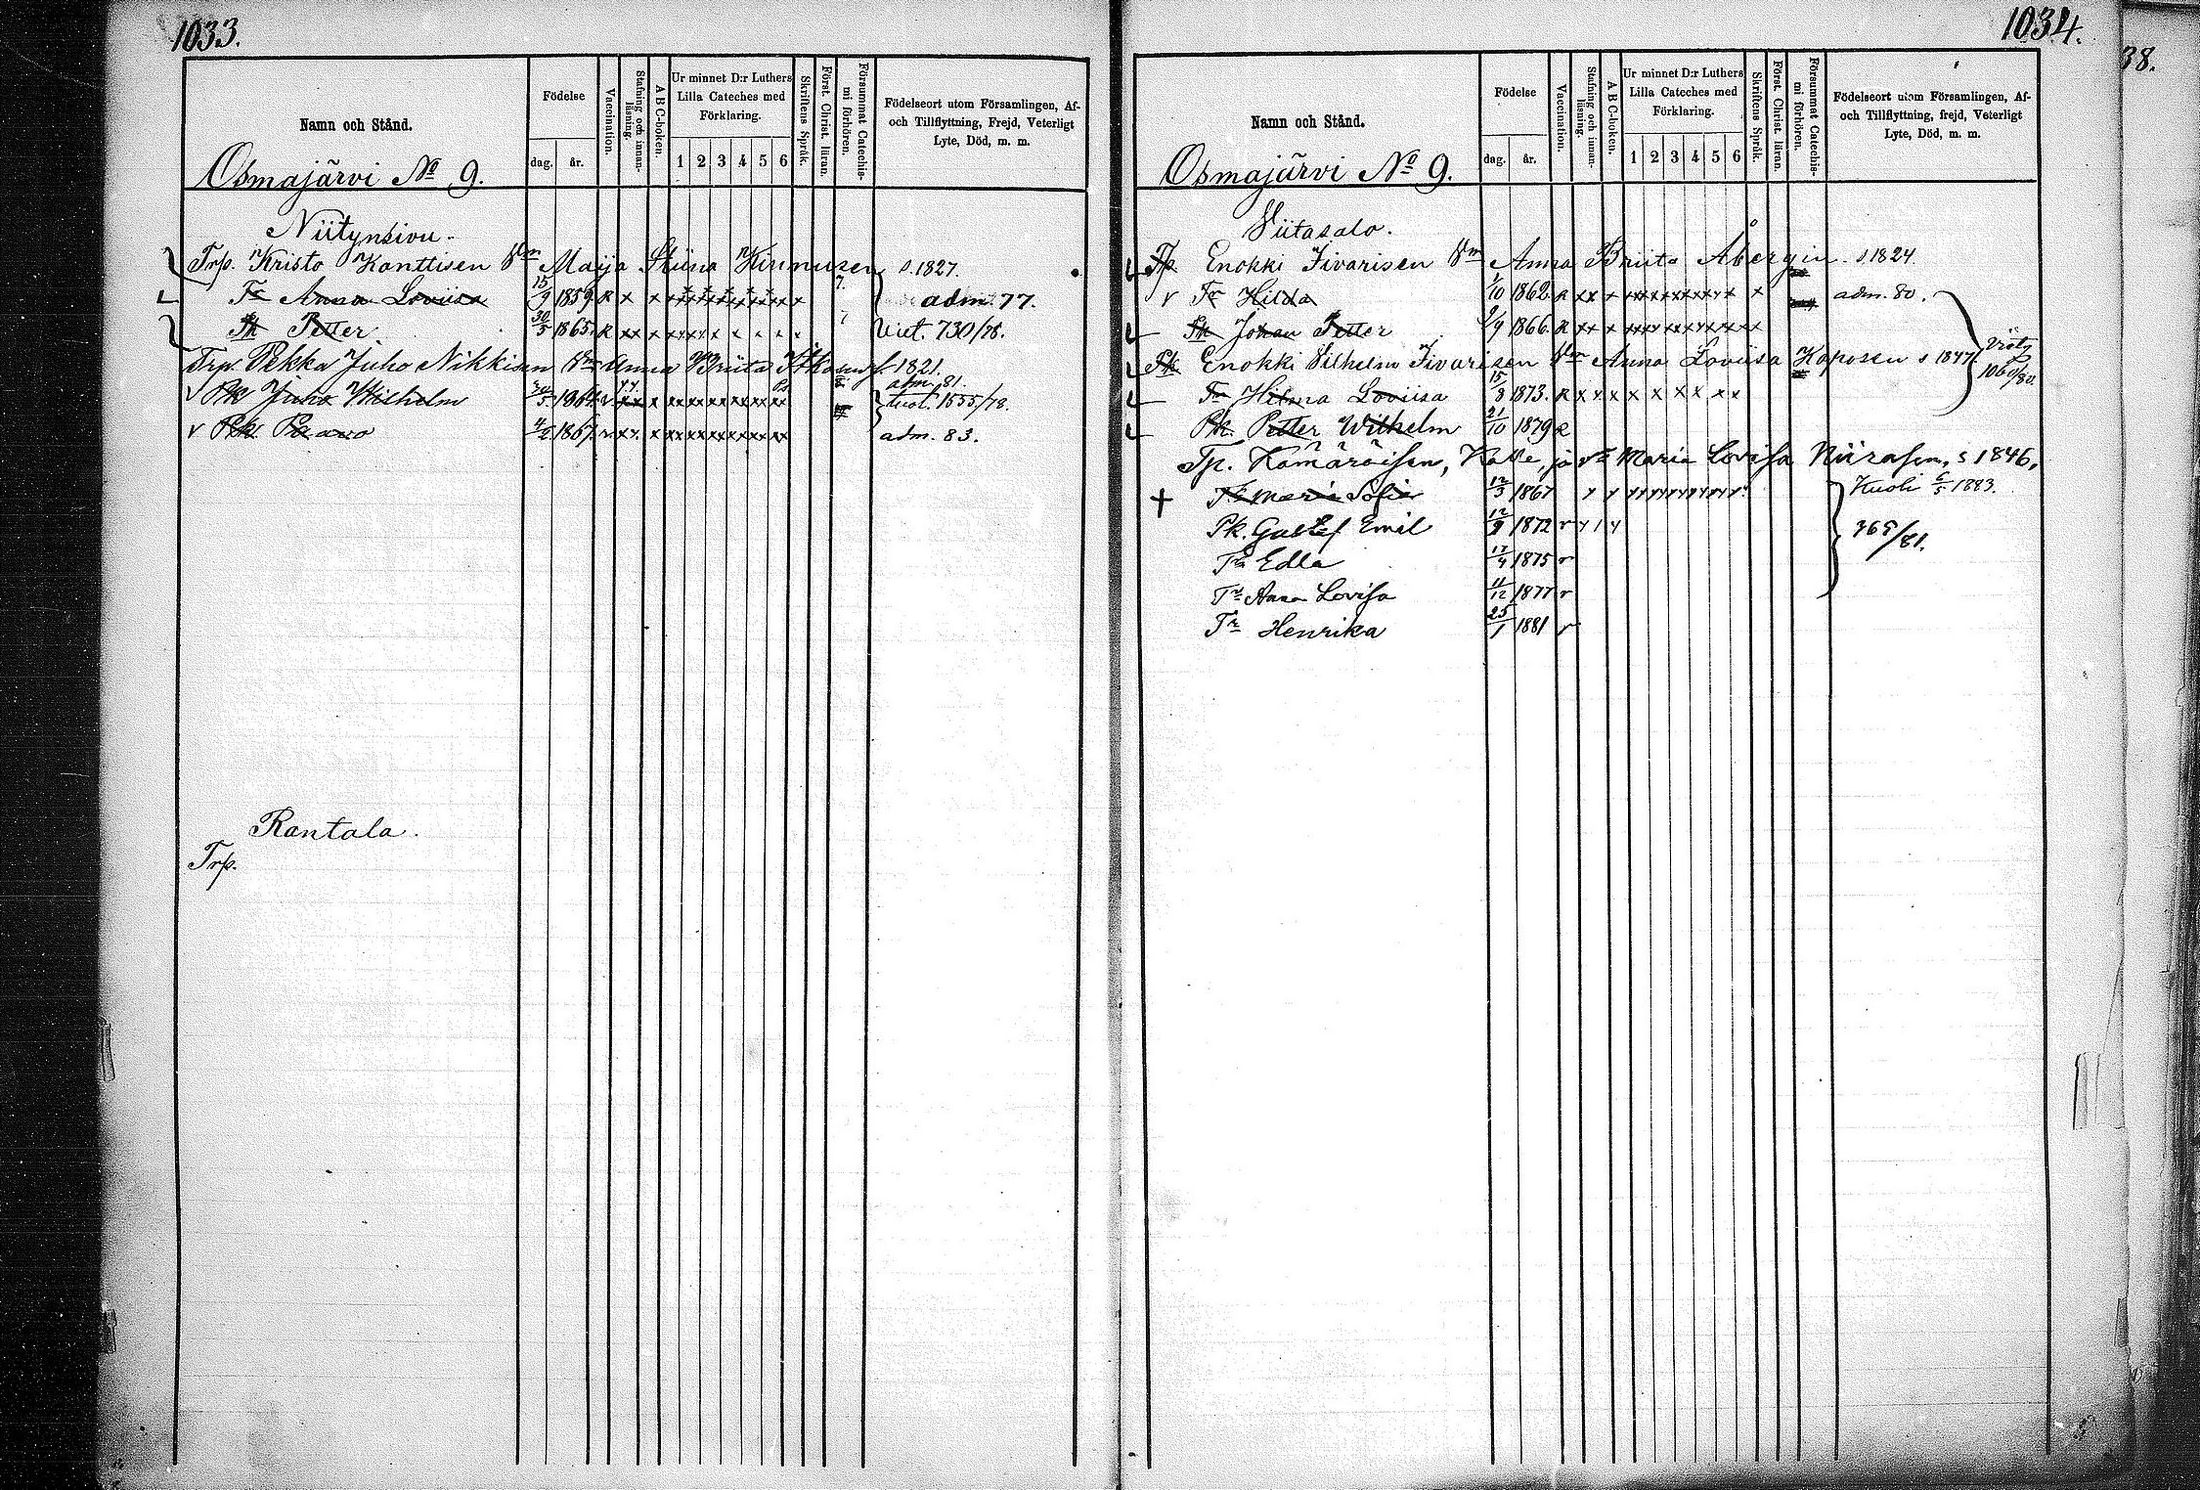 1033.
Namn och Stånd.
Födelse
dag. år.
Vaccination.
Stafning och innan-läsning.
A B C-boken.
Ur minnet D:r Luthers Lilla Cateches med Förklaring.
1 2 3 4 5 6
Skriftens Språk.
Först. Christ. läran.
Försummat Catechis-mi förhören.
Födelseort utom Församlingen, Af-
och Tillflyttning, Frejd, Veterligt
Lyte, Död, m. m.
Osmajärvi No 9.
Niitynsivu.
Trp. Kristo Konttisen Vm Maija Stiina Kinnusen s. 1827.
Tr Anna Loviisa 15/9 1859 R x x x x x x x x x adm. 77.
Pk Petter 30/5 1865 R x x x x x x x x x 730/78.
Trp. Pekka Juho Nikkisen Vm Anna Briita 1821.
v Pk Juho Wilhelm 1864 adm. 81. 1555/78.
v Pk Paavo 4/2 1867 adm. 83.
Rantala.
Trp.
1034.
Namn och Stånd.
Födelse
dag. år.
Vaccination.
Stafning och innan-läsning.
A B C-boken.
Ur minnet D:r Luthers Lilla Cateches med Förklaring.
1 2 3 4 5 6
Skriftens Språk.
Först. Christ. läran.
Försummat Catechis-mi förhören.
Födelseort utom Församlingen, Af-
och Tillflyttning, frejd, Veterligt
Lyte, Död, m. m.
Osmajärvi No 9.
Viitasalo.
Trp. Enokki Iivarisen Vm Anna Briita Åbergin s. 1824
v Tr Hilda 1/10 1862 R x x x adm. 80.
Pk Johan Petter 1866 R x x x
Pk Enokki Vilhelm Iivarisen Vm Anna Loviisa Kaposen s 1847
Tr Hilma Loviisa 15/8 1873. R x x x x x x x x x
Pk. Petter Wilhelm 21/10 1879 R
Tp. Kämäräisen, Kalle, ja Vm Maria Lovisa Niirasen, s 1846.
Tr Maria Sofia 12/3 1867 Kuoli 6/5 1883.
Pk. Gustaf Emil 1872 r 765/81.
Tr Edla 1875 r
Tr Anna Lovisa 11/12 1877 r
Tr Henrika 25/1 1881 r
38.